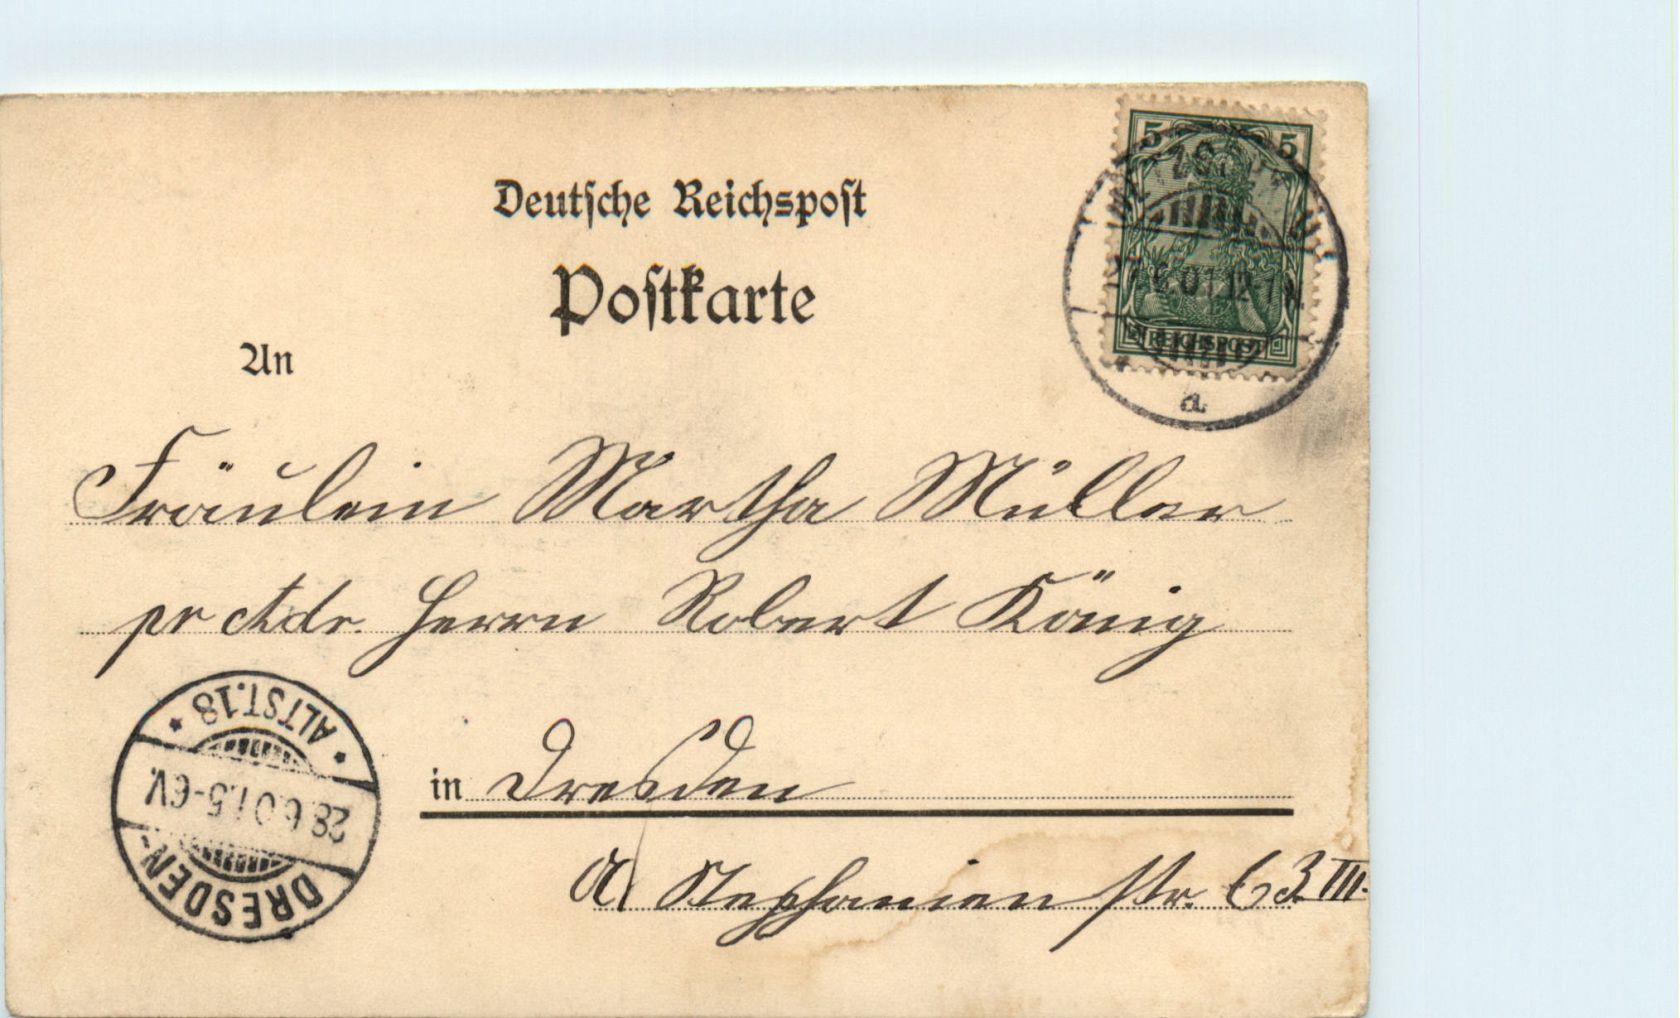 Deutsche Reichspost
Postkarte
5 5
6.01.12-1N.
REICHSPOST
a
An
Fräulein Martha Müller
pr Adr. Herrn Robert König
in Dresden
A/ Stephanien str. 63 III.
DRESDEN-
28.6.01.5-6V.
* ALTST.18 *